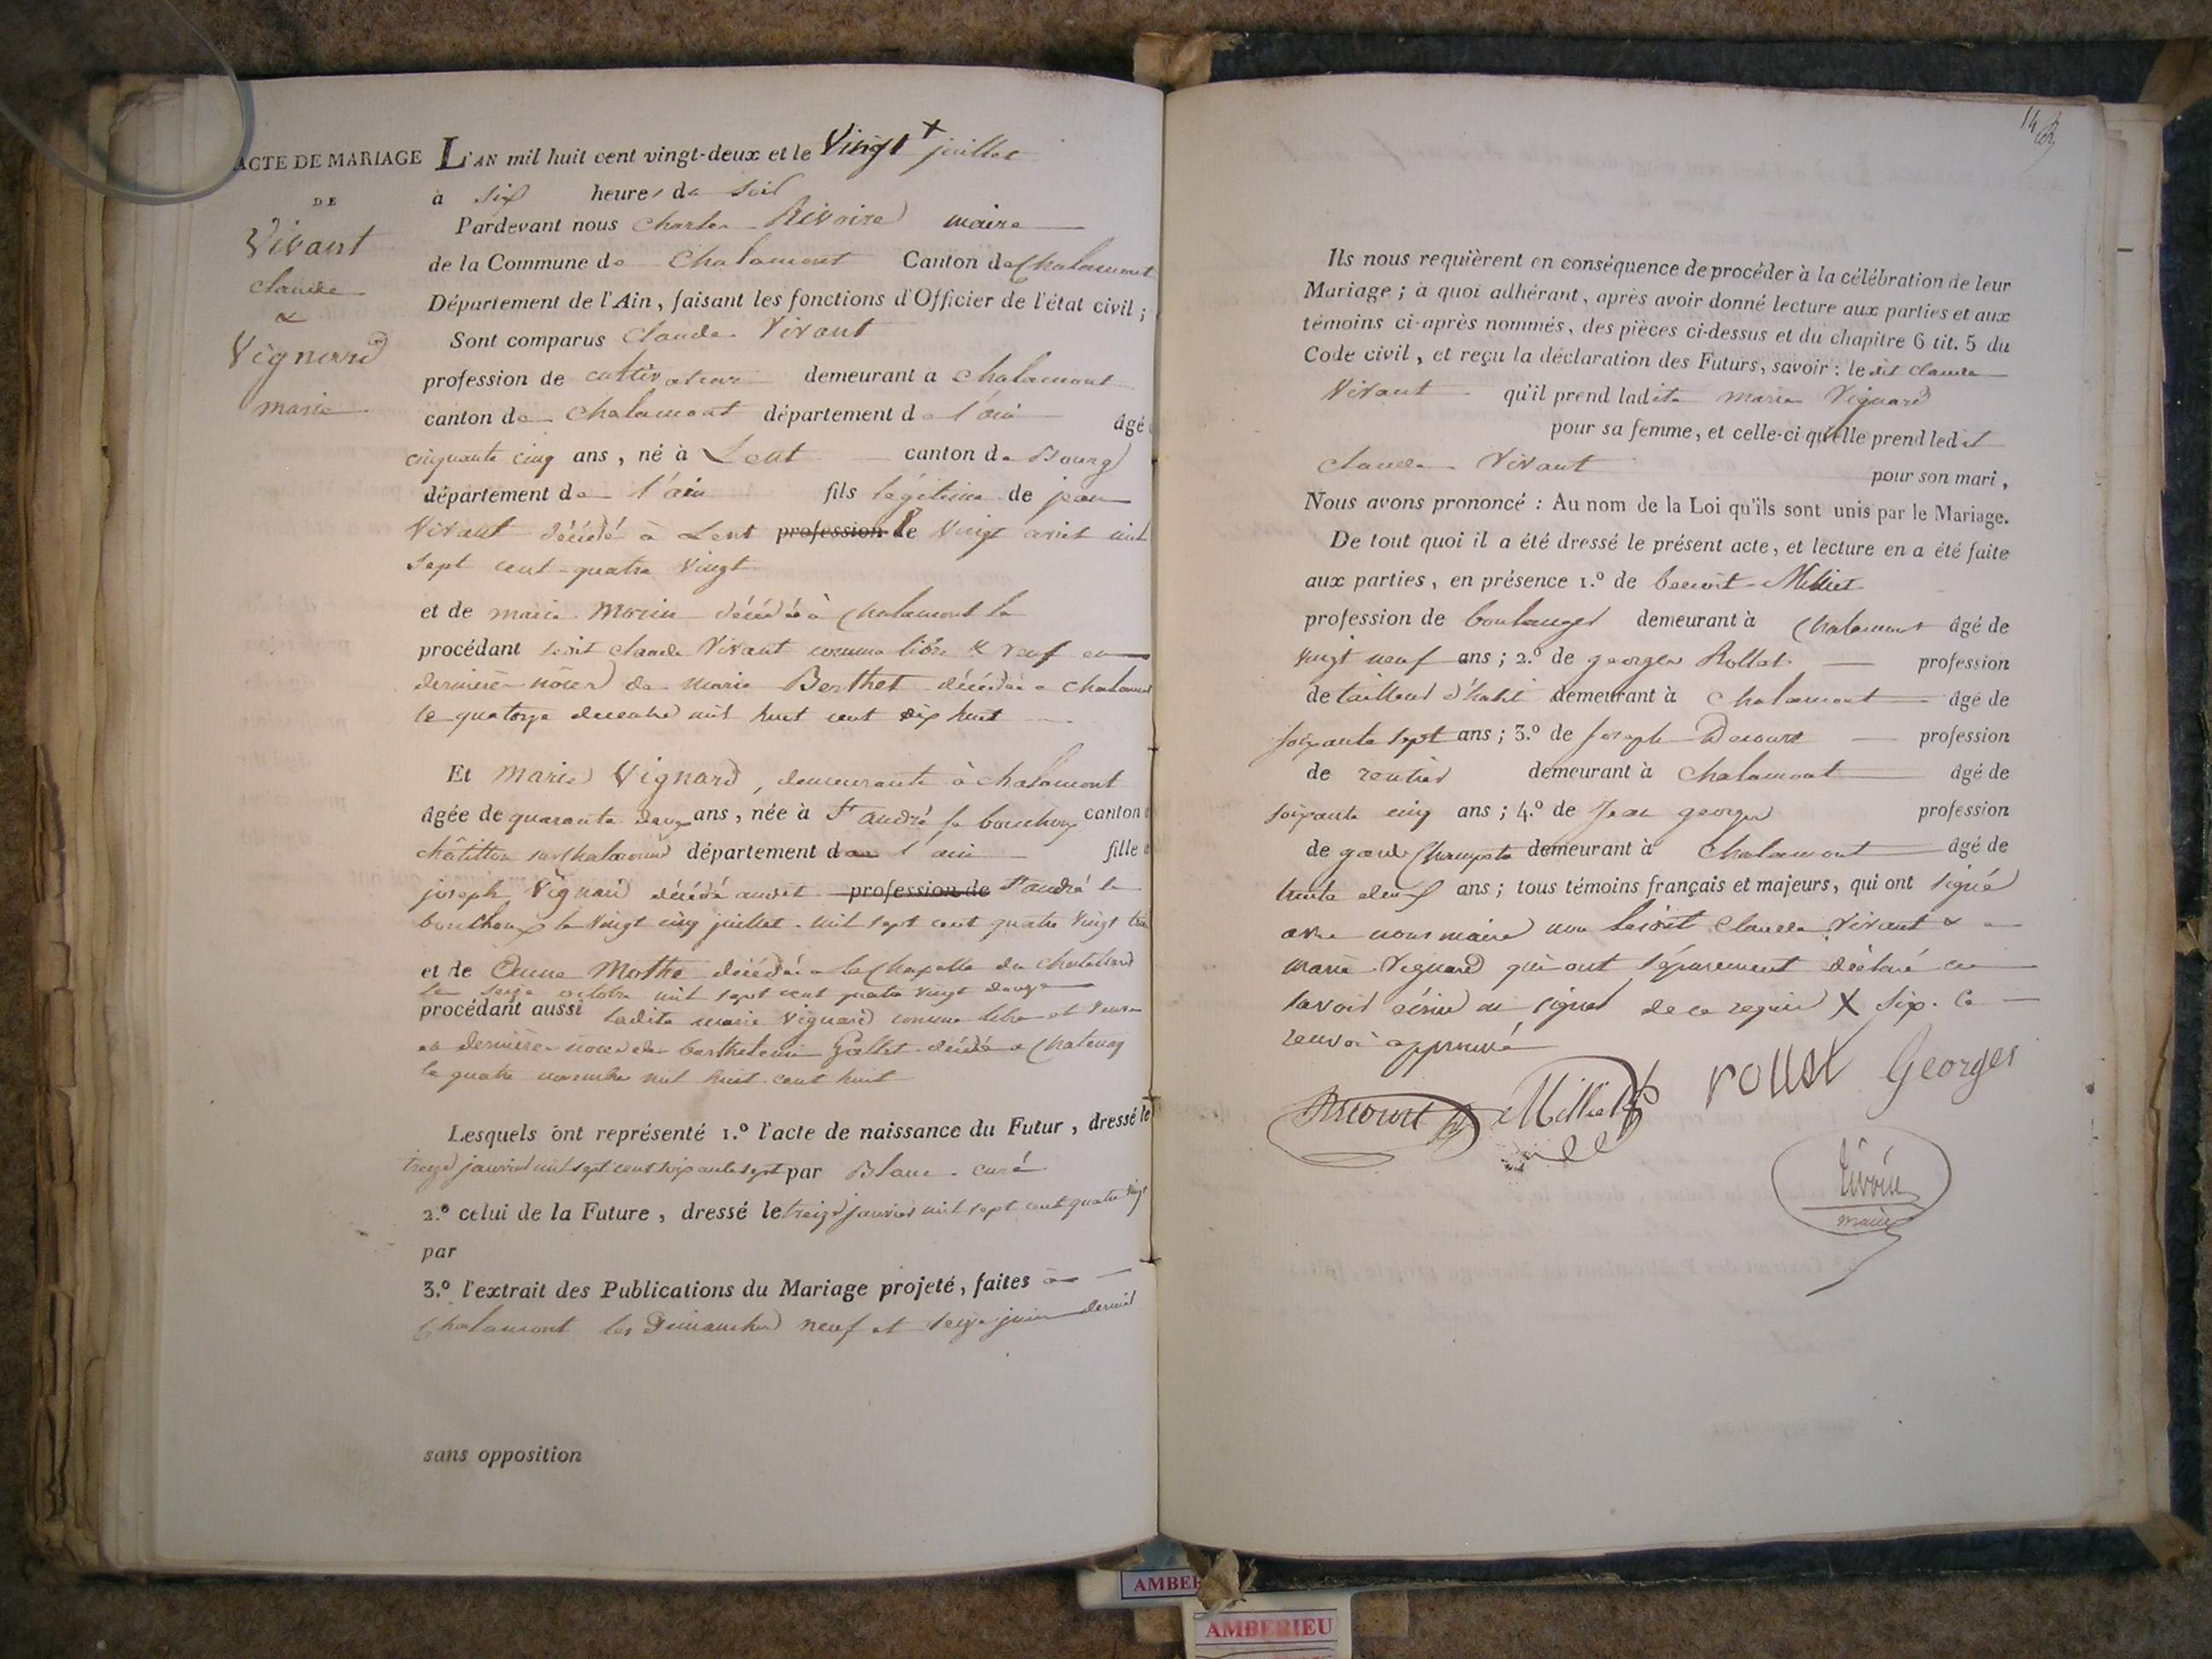 ACTE DE MARIAGE
DE
Vivant
claude
&
Vignard
marie
L'AN mil huit cent vingt-deux et le Vingt + juillet
à six heures du soir
Pardevant nous Charles Rivoire maire
de la Commune de Chalamont Canton de Chalamont
Département de l'Ain, faisant les fonctions d'Officier de l'état civil ;
Sont comparus Claude Vivant
profession de cultivateur demeurant à chalamont
canton de Chalamont département de l'ain âgé
cinquante cinq ans, né à Lent canton de Bourg
département de l'ain fils légitime de jean
Vivant décédé à Lent profession de le vingt avril mil
sept cent quatre vingt
et de marie Morin décédée à Chalamont le
procédant ledit claude Vivant comme libre & veuf en
dernières nôces de marie Berthet décédée a chalamont
le quatorze decembre mil huit cent dix huit
Et Marie Vignard, demeurante à chalamont
âgée de quarante deux ans, née à St andré le bouchoux canton
châtillon sur chalaronne département de l'ain fille
joseph Vignard décédé audit profession de St andré le
bouchoux le vingt cinq juillet mil sept cent quatre vingt
et de Anne Mothe décédée a la Chapelle du Chatelard
le seize octobre mil sept cent quatre vingt douze
procédant aussi ladite marie Vignard comme libre et veuve
en dernières noces de barthelemi Gallet décédé a Chatenay
le quatre novembre mil huit cent huit
Lesquels ont représenté 1.º l'acte de naissance du Futur, dressé le
treize janvier mil sept cent soixante sept par Blanc curé
2.º celui de la Future, dressé le treize janvier mil sept cent quatre vingt
par
3.º l'extrait des Publications du Mariage projeté, faites à
Chalamont les Dimanches neuf et seize juin dernier
sans opposition
14
Ils nous requièrent en conséquence de procéder à la célébration de leur
Mariage ; à quoi adhérant, après avoir donné lecture aux parties et aux
témoins ci-après nommés, des pièces ci-dessus et du chapitre 6 tit. 5 du
Code civil, et reçu la déclaration des Futurs, savoir : le dit claude
Vivant qu'il prend ladite marie Vignard
pour sa femme, et celle-ci qu'elle prend ledit
claude Vivant pour son mari,
Nous avons prononcé : Au nom de la Loi qu'ils sont unis par le Mariage.
De tout quoi il a été dressé le présent acte, et lecture en a été faite
aux parties, en présence 1.º de benoit Milliet
profession de boulanger demeurant à Chalamont âgé de
vingt neuf ans ; 2.º de georges Rollet profession
de tailleur d'habit demeurant à Chalamont âgé de
soixante sept ans ; 3.º de Joseph Decourt profession
de rentier demeurant à Chalamont âgé de
soixante cinq ans ; 4.º de Jean georges profession
de garde Champetre demeurant à Chalamont âgé de
trente deux ans ; tous témoins français et majeurs, qui ont signé
avec nous maire non lesdits Claude Vivant &
marie Vignard qui ont séparement déclaré ne
savoir écrire ni signer de ce requis X six. Ce
renvoi approuvé
Milliet Georges
maire
AMBERIEU